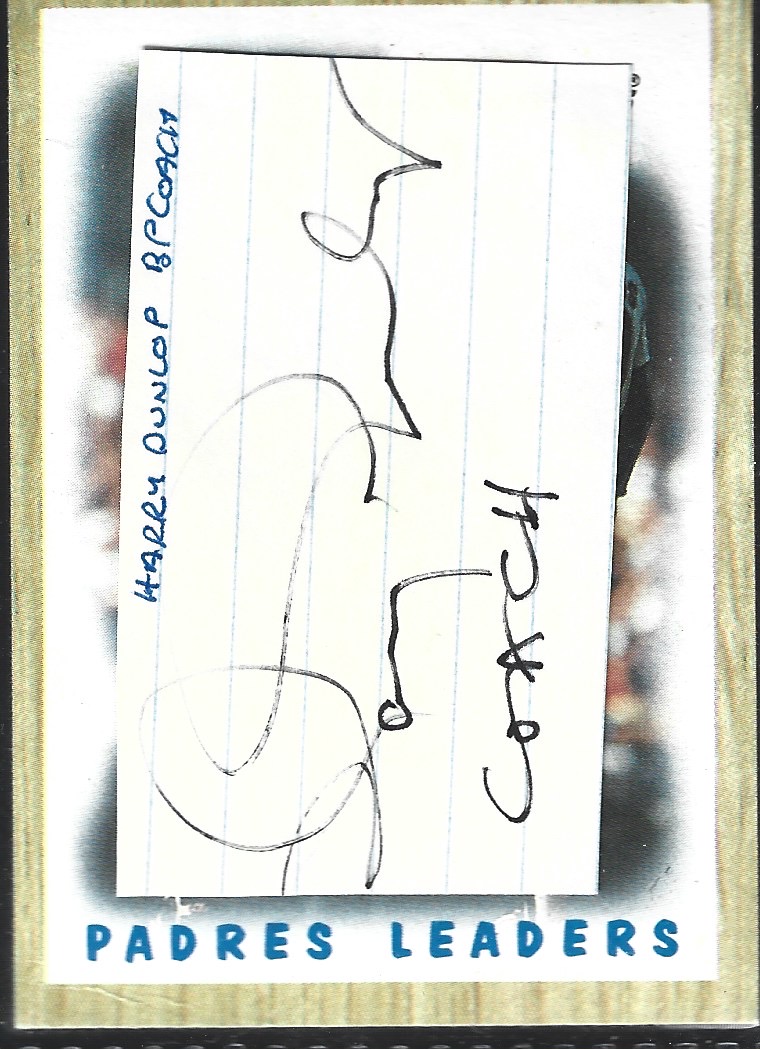 HARRY DUNLOP BPCOACH
COACH
PADRES LEADERS